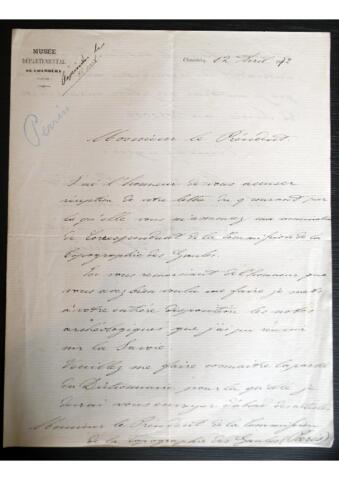 MUSÉE
DÉPARTEMENTAL
DE CHAMBÉRY
Perrin
Chambéry, 12 Avril 72
Monsieur le Président
J'ai l'honneur de vous accuser
réception de votre lettre du 9 courant par
laquelle vous m'annoncez ma nomination
de Correspondant de la Commission de la
topographie des Gaules.
En vous remerciant de l'honneur que
vous avez bien voulu me faire je mets
à votre entière disposition les notes
archéologiques que j'ai pu réunir
sur la Savoie
Veuillez me faire connaître la partie
du Dictionnaire pour laquelle je
devrai vous envoyer d'abord des articles
Monsieur le Président de la Commission
de la topographie des Gaules (Paris)